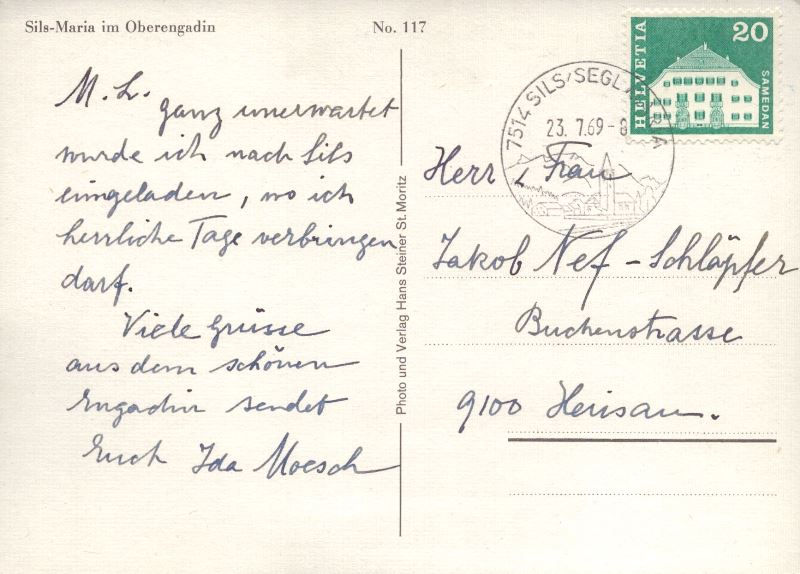 Sils-Maria im Oberengadin
No. 117
M. L. ganz unerwartet
wurde ich nach Sils
eingeladen, wo ich
herrliche Tage verbringen
darf.
Viele Grüsse
aus dem schönen
Engadin sendet
Euch Ida Moesch
Photo und Verlag Hans Steiner St. Moritz
7514 SILS/SEGL MARIA
23. 7.69-8
HELVETIA
20
SAMEDAN
Herr & Frau
Jakob Nef-Schläpfer
Buchenstrasse
9100 Herisau.